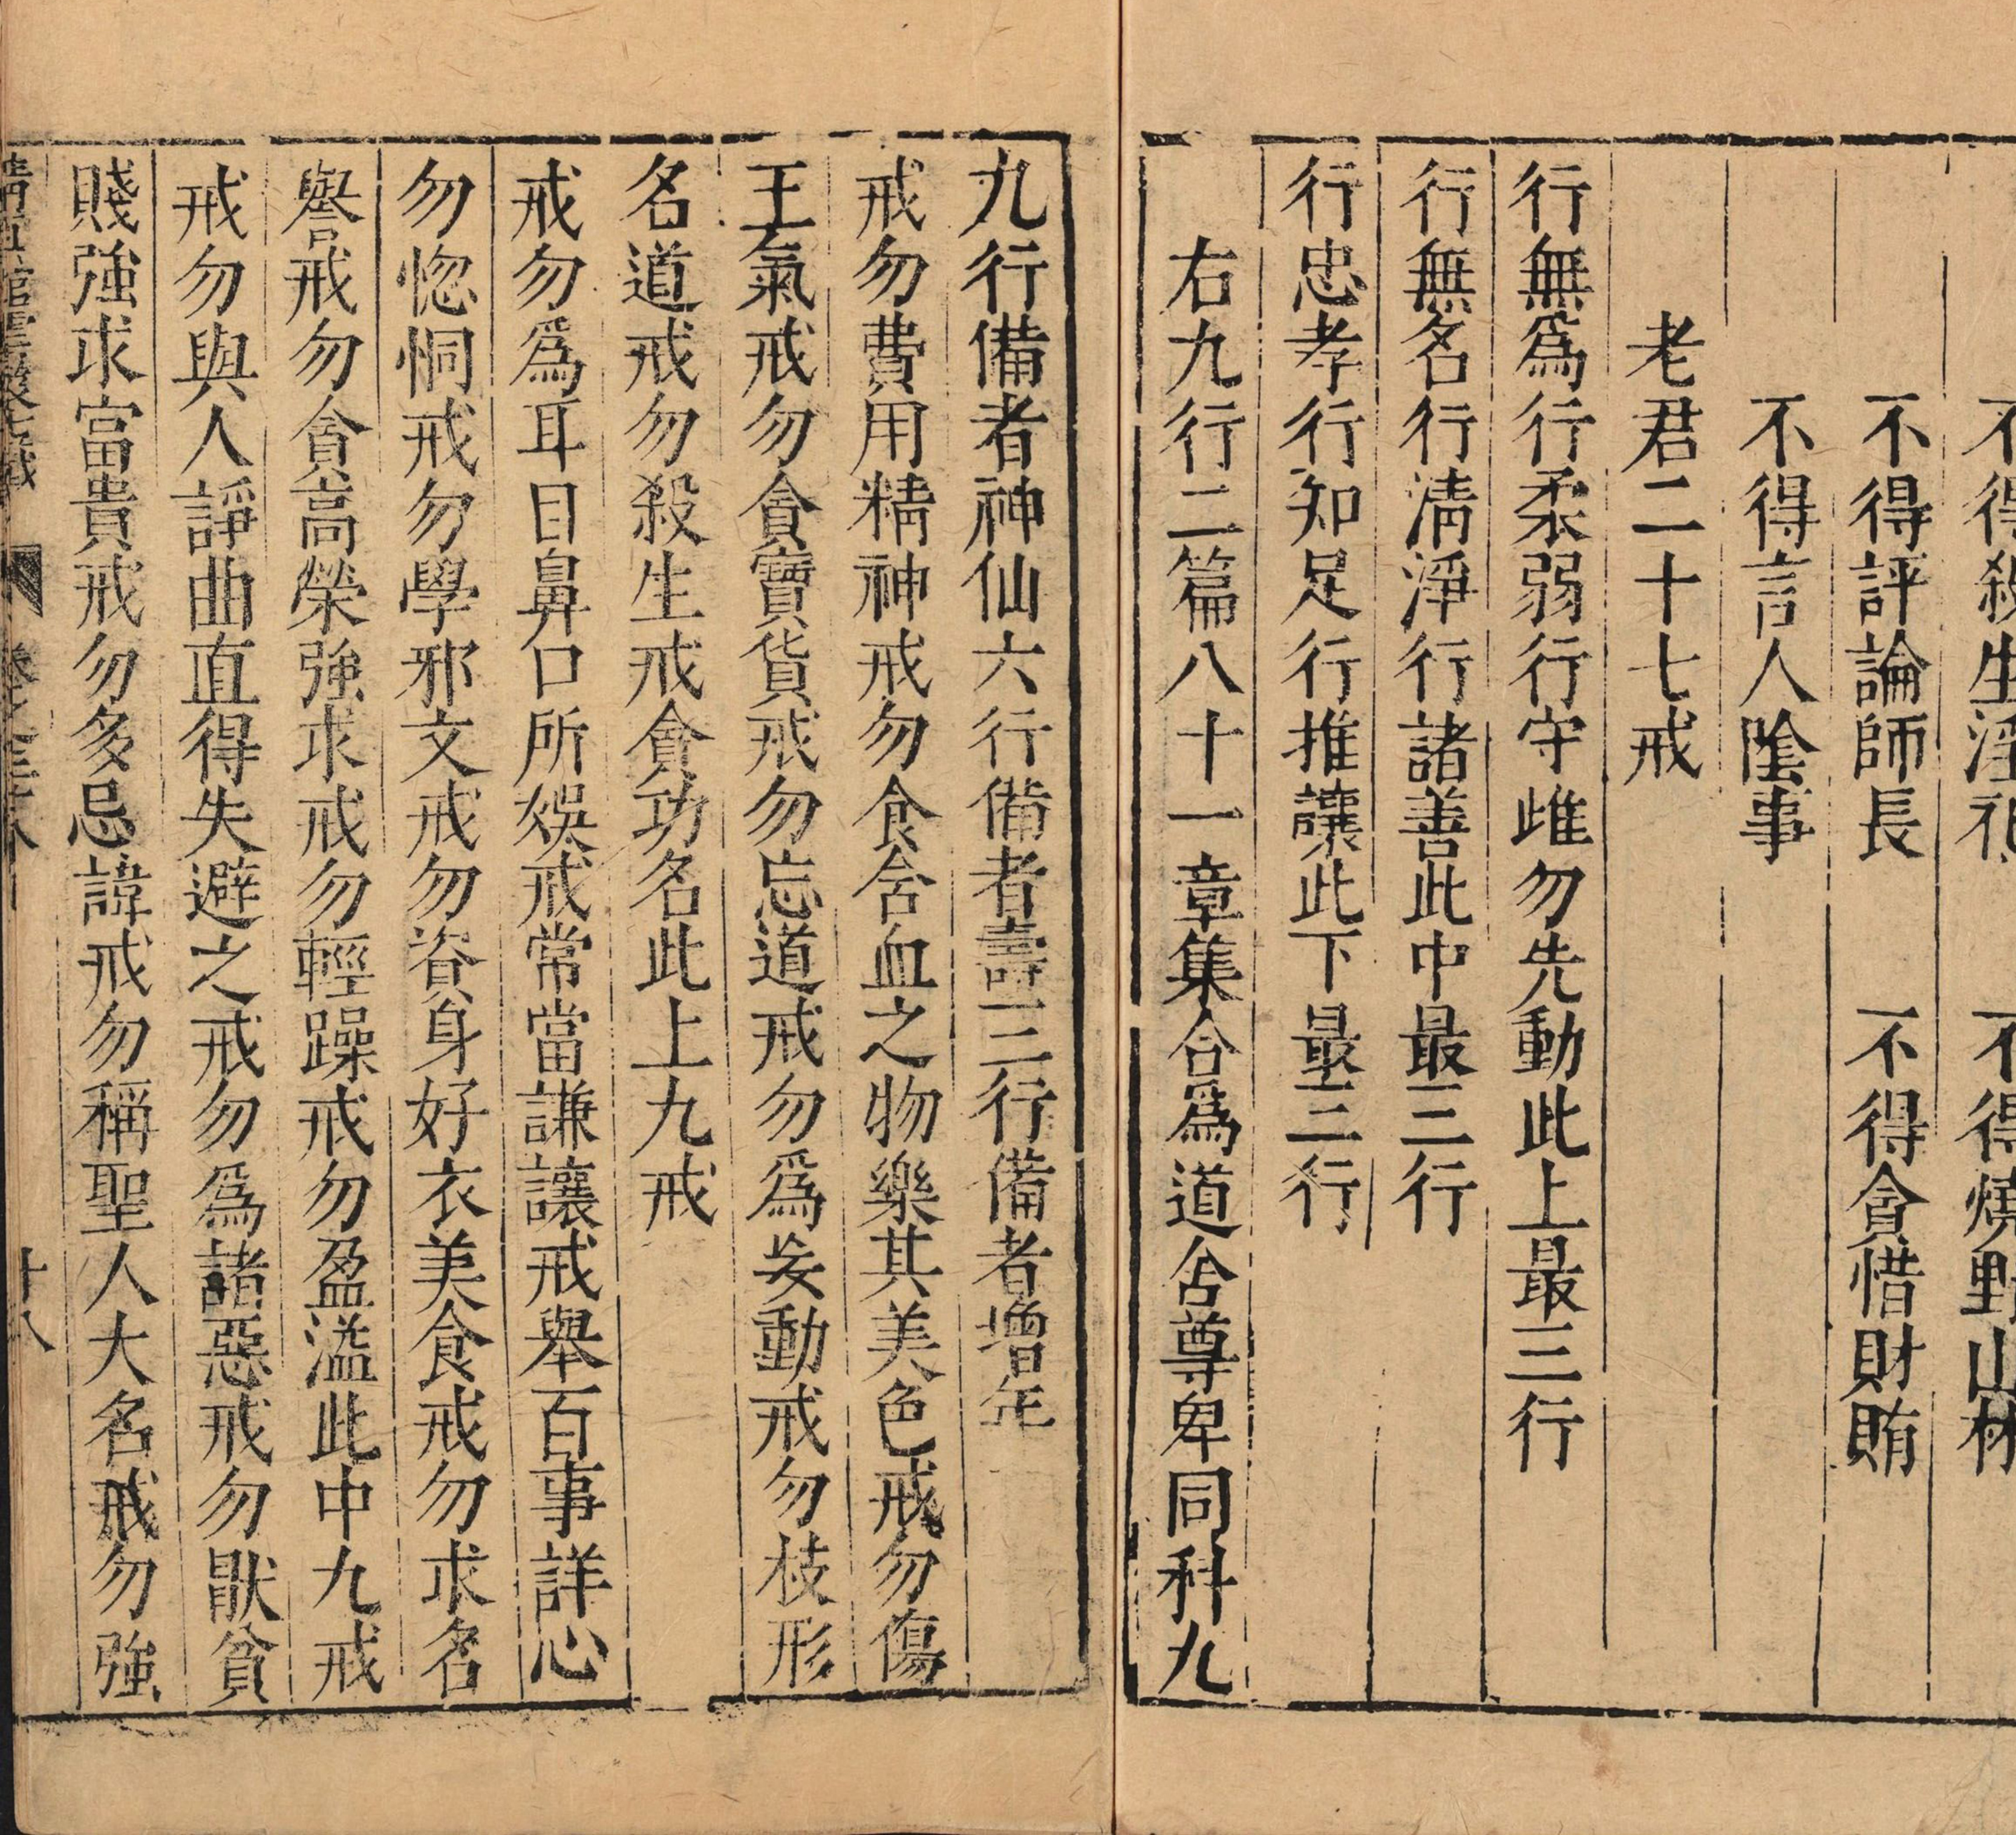 不得殺生淫祀　不得燒野山林
不得評論師長　不得貪惜財賄
不得言人陰事
老君二十七戒
行無爲行柔弱行守雌勿先動此上最三行
行無名行清淨行諸善此中最三行
行忠孝行知足行推讓此下最三行
右九行二篇八十一章集合爲道舍尊卑同科九
九行備者神仙六行備者壽三行備者增年
戒勿費用精神戒勿食含血之物樂其美色戒勿傷
王氣戒勿貪寶貨戒勿忘道戒勿爲妄動戒勿枝形
名道戒勿殺生戒貪功名此上九戒
戒勿爲耳目鼻口所娛戒常當謙讓戒舉百事詳心
勿惚恫戒勿學邪文戒勿資身好衣美食戒勿求名
譽戒勿貪高榮強求戒勿輕躁戒勿盈溢此中九戒
戒勿與人諍曲直得失避之戒勿爲諸惡戒勿厭貧
賤強求富貴戒勿多忌諱戒勿稱聖人大名戒勿強
清真館雲笈七籤　卷之三十八　十八